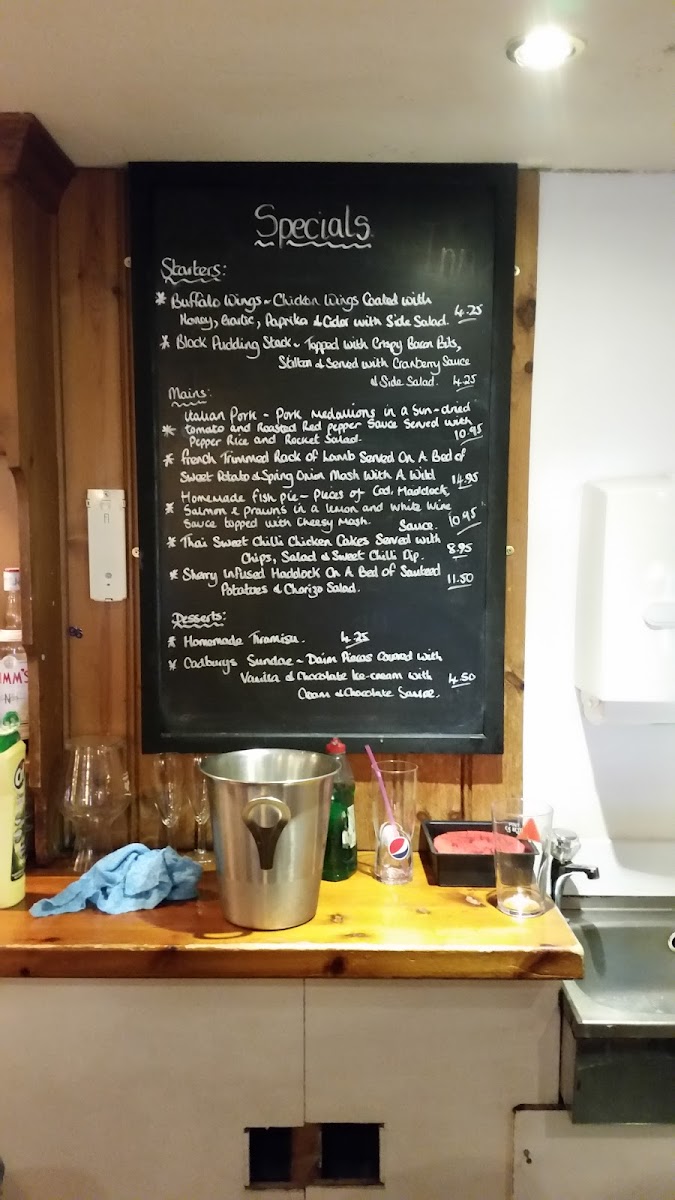 Specials
Inn
Starters:
* Buffalo Wings ~ Chicken Wings Coated with
Honey, Garlic, Paprika & Cider with Side Salad. 4.25
* Black Pudding Stack ~ Topped with Crispy Bacon Bits,
Stilton & Served with Cranberry Sauce
& Side Salad. 4.25
Mains:
Italian Pork - Pork medallions in a Sun-dried
* tomato and Roasted Red pepper Sauce Served with
Pepper Rice and Rocket Salad. 10.95
* French Trimmed Rack of Lamb Served On A Bed of
Sweet Potato & Spring Onion Mash With A Wild 14.95
Homemade fish pie - pieces of Cod, Haddock,
* Salmon & prawns in a lemon and white wine
Sauce topped with Cheesy Mash. Sauce. 10.95
* Thai Sweet Chilli Chicken Cakes Served with
Chips, Salad & Sweet Chilli Dip. 8.95
* Sherry Infused Haddock On A Bed of Sauteed
Potatoes & Chorizo Salad. 11.50
Desserts:
* Homemade Tiramisu. 4.25
* Cadburys Sundae ~ Daim Pieces Covered with
Vanilla & Chocolate Ice-cream with 4.50
Cream & Chocolate Sauce.
IMM'S
N°
pepsi